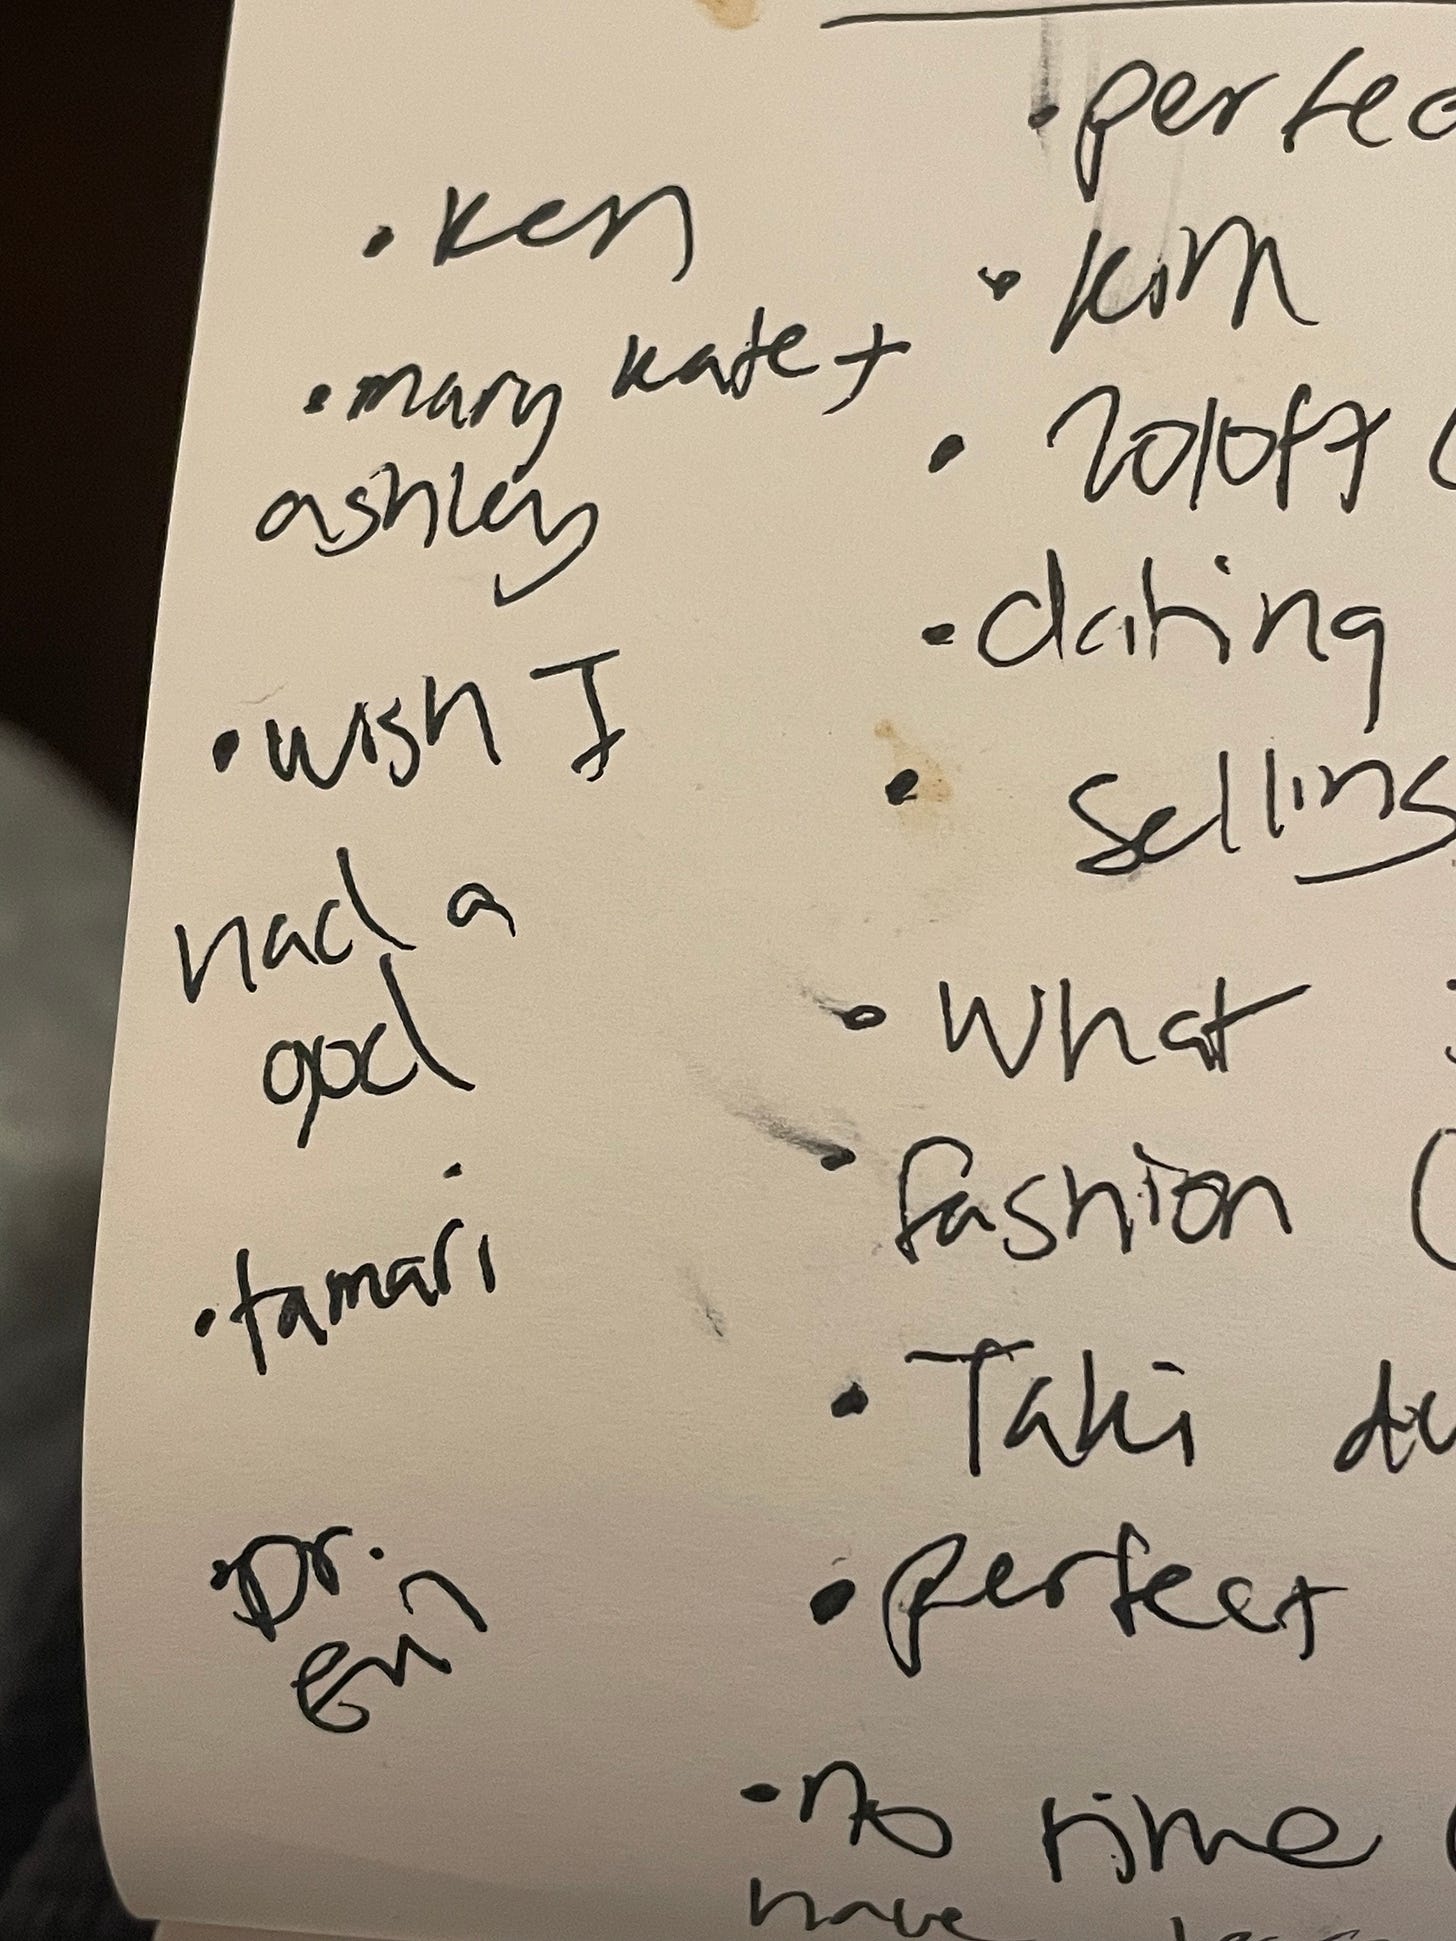 • Ken
• mary kate +
ashley
• wish I
had a
god
• tamari
• Dr.
Erin
• perfec
• kim
• zoloft (
• dating
• selling
• what
• fashion (
• Taki
• perfect
• no time
have